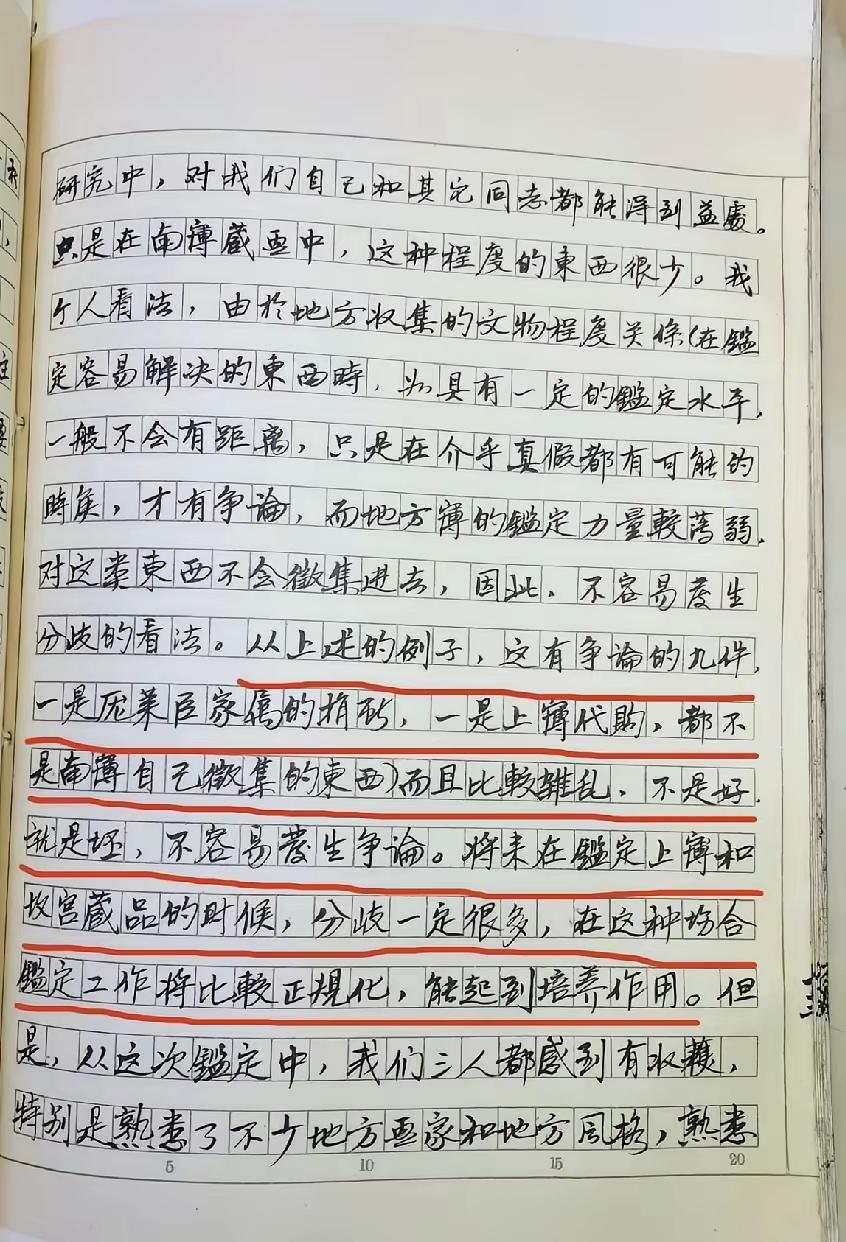 研究中，对我们自己和其它同志都能得到益處。
只是在南溥藏画中，这种程度的東西很少。我
个人看法，由於地方收集的文物程度关係（在鑑
定容易解决的東西時，如具有一定的鑑定水平，
一般不会有距离，只是在介乎真假都有可能的
時候，才有争論，而地方溥的鑑定力量較薄弱，
对这类東西不会徵集进去，因此，不容易發生
分歧的看法。从上述的例子，这有争論的九件，
一是庞莱臣家属的捐献，一是上溥代購，都不
是南溥自己徵集的東西）而且比較雜乱，不是好
就是坏，不容易發生争論。将来在鑑定上溥和
故宫藏品的时候，分歧一定很多，在这种场合
鑑定工作将比較正規化，能起到培养作用。但
是，从这次鑑定中，我们三人都感到有收穫，
特别是熟悉了不少地方画家和地方風格，熟悉
5 10 15 20